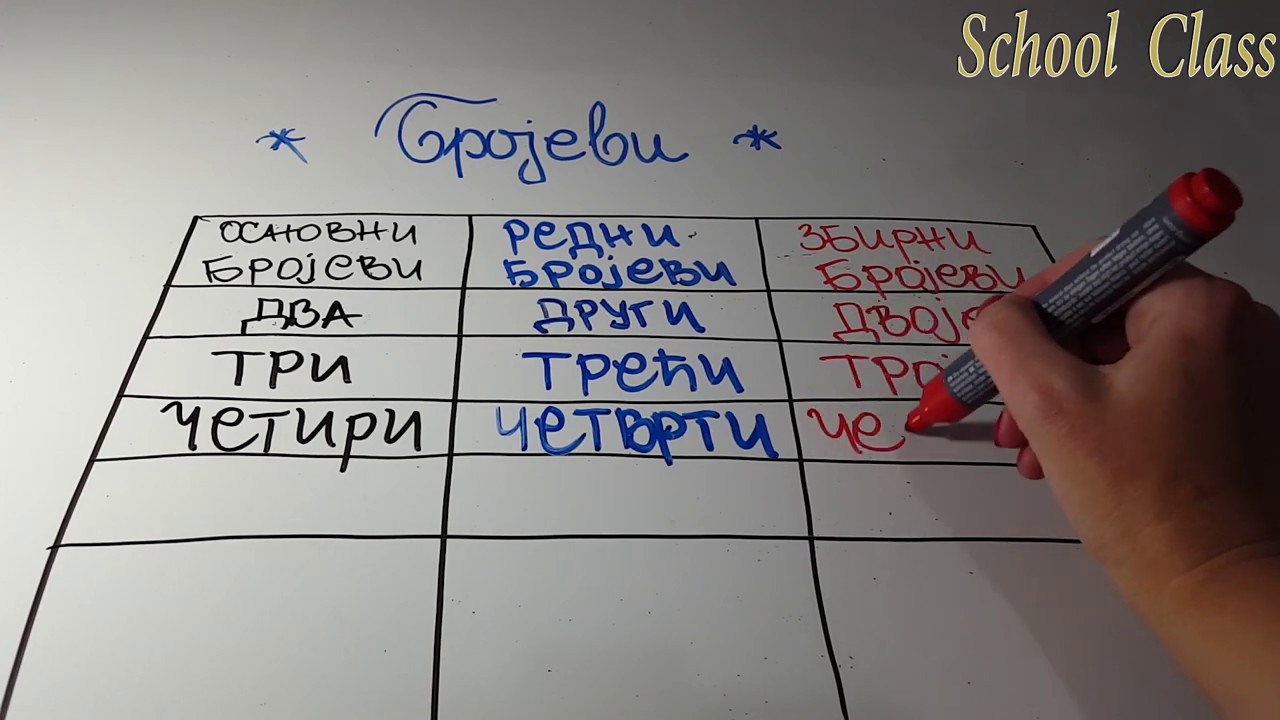 School Class
* Бројеви *
ОСНОВНИ БРОЈЕВИ
РЕДНИ БРОЈЕВИ
ЗБИРНИ БРОЈЕВИ
ДВА ДРУГИ ДВОЈЕ
ТРИ ТРЕЋИ ТРОЈ
ЧЕТИРИ ЧЕТВРТИ ЧЕ